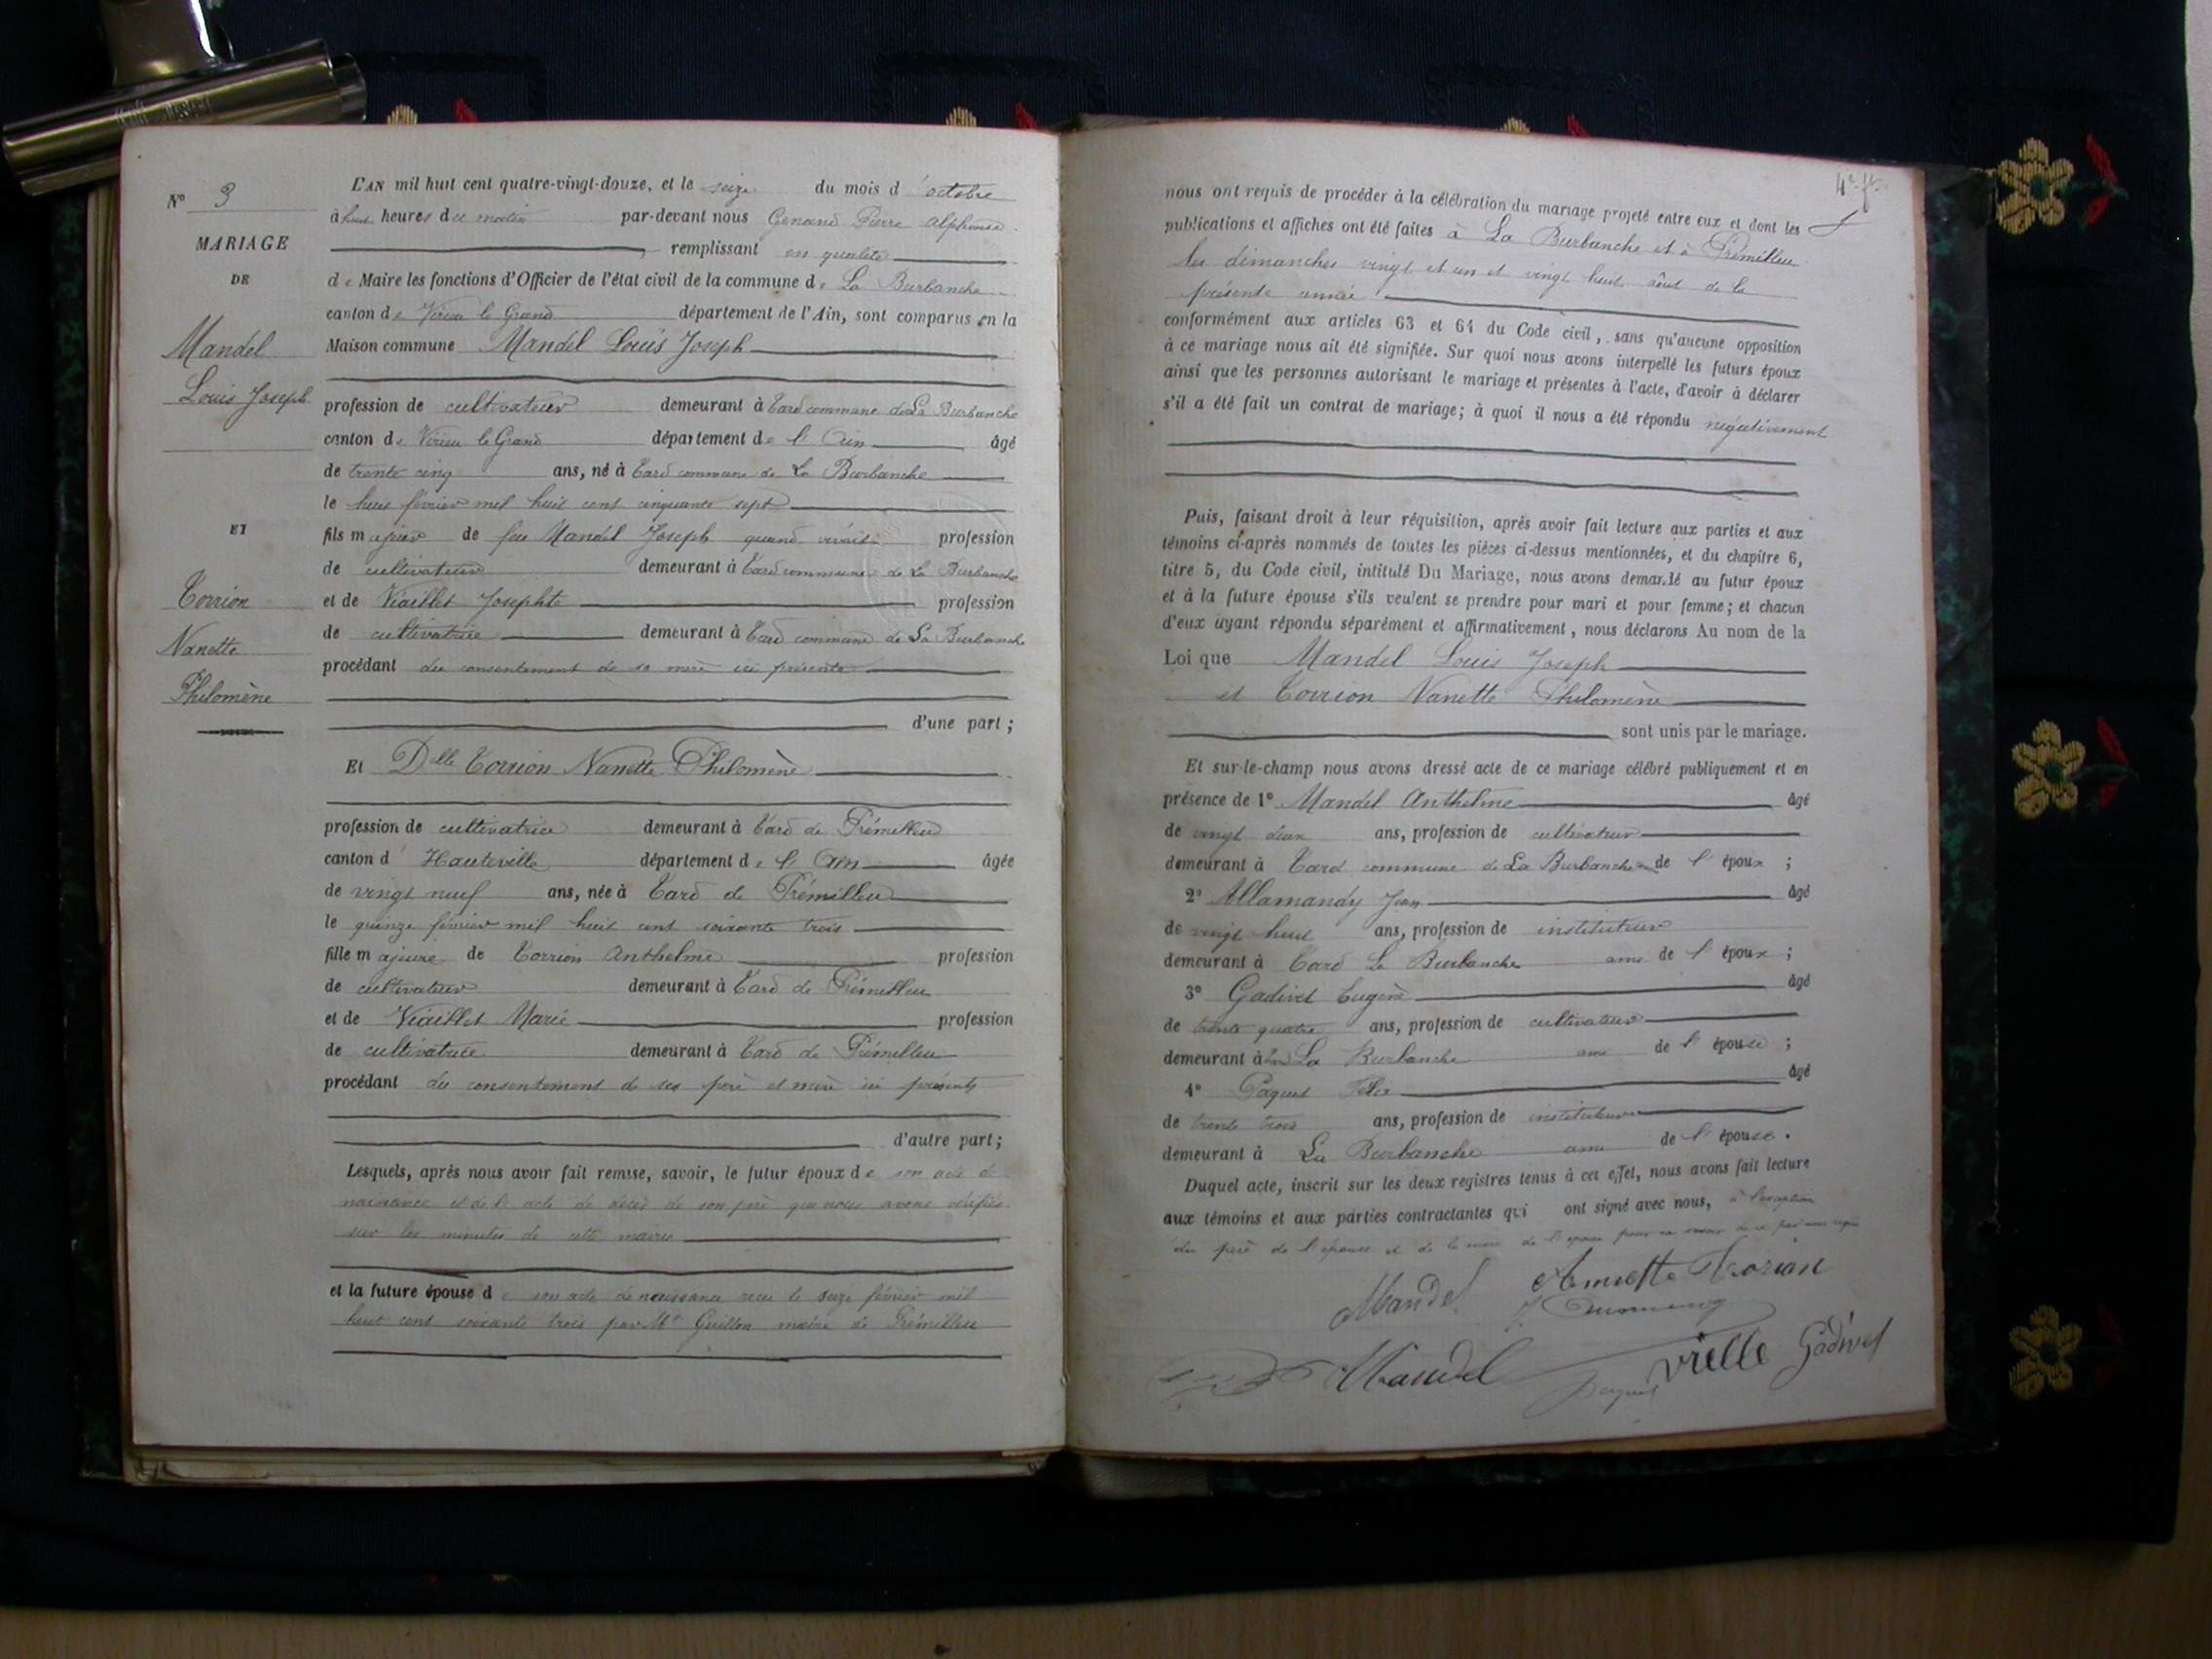 N° 3
MARIAGE
DE
Mandel
Louis Joseph
ET
Torrion
Nanette
Philomène
L'AN mil huit cent quatre-vingt-douze, et le seize du mois d'octobre
à huit heures du matin par-devant nous Genand Pierre Alphonse
remplissant en qualité
de Maire les fonctions d'Officier de l'état civil de la commune de La Burbanche
canton de Virieu le Grand département de l'Ain, sont comparus en la
Maison commune Mandel Louis Joseph
profession de cultivateur demeurant à Tard commune de La Burbanche
canton de Virieu le Grand département de l'Ain âgé
de trente cinq ans, né à Tard commune de La Burbanche
le huit février mil huit cent cinquante sept
fils majeur de feu Mandel Joseph quand vivait profession
de cultivateur demeurant à Tard commune de La Burbanche
et de Viaillet Josephte profession
de cultivatrice demeurant à Tard commune de La Burbanche
procédant du consentement de sa mère ici présente
d'une part ;
Et Dlle Torrion Nanette Philomène
profession de cultivatrice demeurant à Tard de Prémillieu
canton d'Hauteville département de l'Ain âgée
de vingt neuf ans, née à Tard de Prémillieu
le quinze février mil huit cent soixante trois
fille majeure de Torrion Anthelme profession
de cultivateur demeurant à Tard de Prémillieu
et de Viaillet Marie profession
de cultivatrice demeurant à Tard de Prémillieu
procédant du consentement de ses père et mère ici présents
d'autre part ;
Lesquels, après nous avoir fait remise, savoir, le futur époux de son acte de
naissance et de l'acte de décès de son père que nous avons vérifiés
sur les minutes de cette mairie
et la future épouse de son acte de naissance reçu le seize février mil
huit cent soixante trois par Mr Guillon maire de Prémillieu
nous ont requis de procéder à la célébration du mariage projeté entre eux et dont les
publications et affiches ont été faites à La Burbanche et à Prémillieu
les dimanches vingt et un et vingt huit août de la
présente année
conformément aux articles 63 et 64 du Code civil, sans qu'aucune opposition
à ce mariage nous ait été signifiée. Sur quoi nous avons interpellé les futurs époux
ainsi que les personnes autorisant le mariage et présentes à l'acte, d'avoir à déclarer
s'il a été fait un contrat de mariage; à quoi il nous a été répondu négativement
Puis, faisant droit à leur réquisition, après avoir fait lecture aux parties et aux
témoins ci-après nommés de toutes les pièces ci-dessus mentionnées, et du chapitre 6,
titre 5, du Code civil, intitulé Du Mariage, nous avons demandé au futur époux
et à la future épouse s'ils veulent se prendre pour mari et pour femme; et chacun
d'eux ayant répondu séparément et affirmativement, nous déclarons Au nom de la
Loi que Mandel Louis Joseph
et Torrion Nanette Philomène
sont unis par le mariage.
Et sur-le-champ nous avons dressé acte de ce mariage célébré publiquement et en
présence de 1° Mandel Anthelme âgé
de vingt deux ans, profession de cultivateur
demeurant à Tard commune de La Burbanche de l'époux ;
2° Allamandy Jean âgé
de vingt huit ans, profession de instituteur
demeurant à Tard La Burbanche ami de l'époux ;
3° Gadivet Eugène âgé
de trente quatre ans, profession de cultivateur
demeurant à La Burbanche ami de l'épouse ;
4° Paquet Félix âgé
de trente trois ans, profession de instituteur
demeurant à La Burbanche ami de l'épouse.
Duquel acte, inscrit sur les deux registres tenus à cet effet, nous avons fait lecture
aux témoins et aux parties contractantes qui ont signé avec nous, à l'exception
du père de l'épouse et de la mère de l'époux pour ne savoir de ce par nous requis
Mandel
Mandel
Paquet
vielle
Gadivet